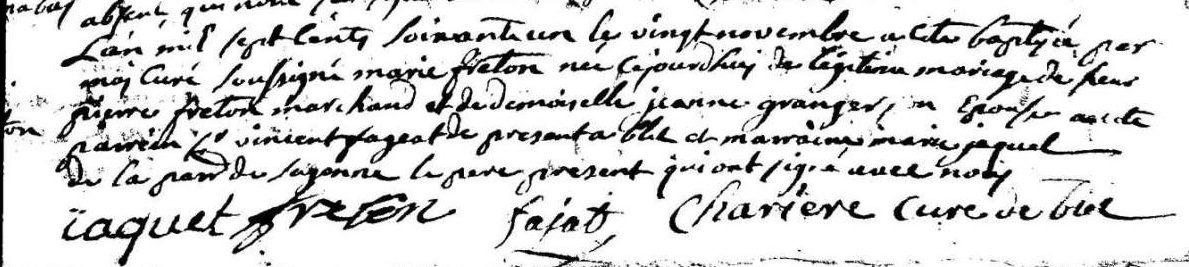 absent, qui nont
L'an mil sept cents soixante un le vingt novembre a ete baptisée par
moi curé soussigné marie freton nee cejourdhui de legitime mariage de sieur
pierre freton marchand et de demoiselle jeanne granger, son Epouse a ete
parrein Sr vincent fageat de present a biol et marraine marie jaquet
de la parr de sayenne le pere present qui ont signé avec nous
ton
iaquet freton fajat, Chariere Curé de biol